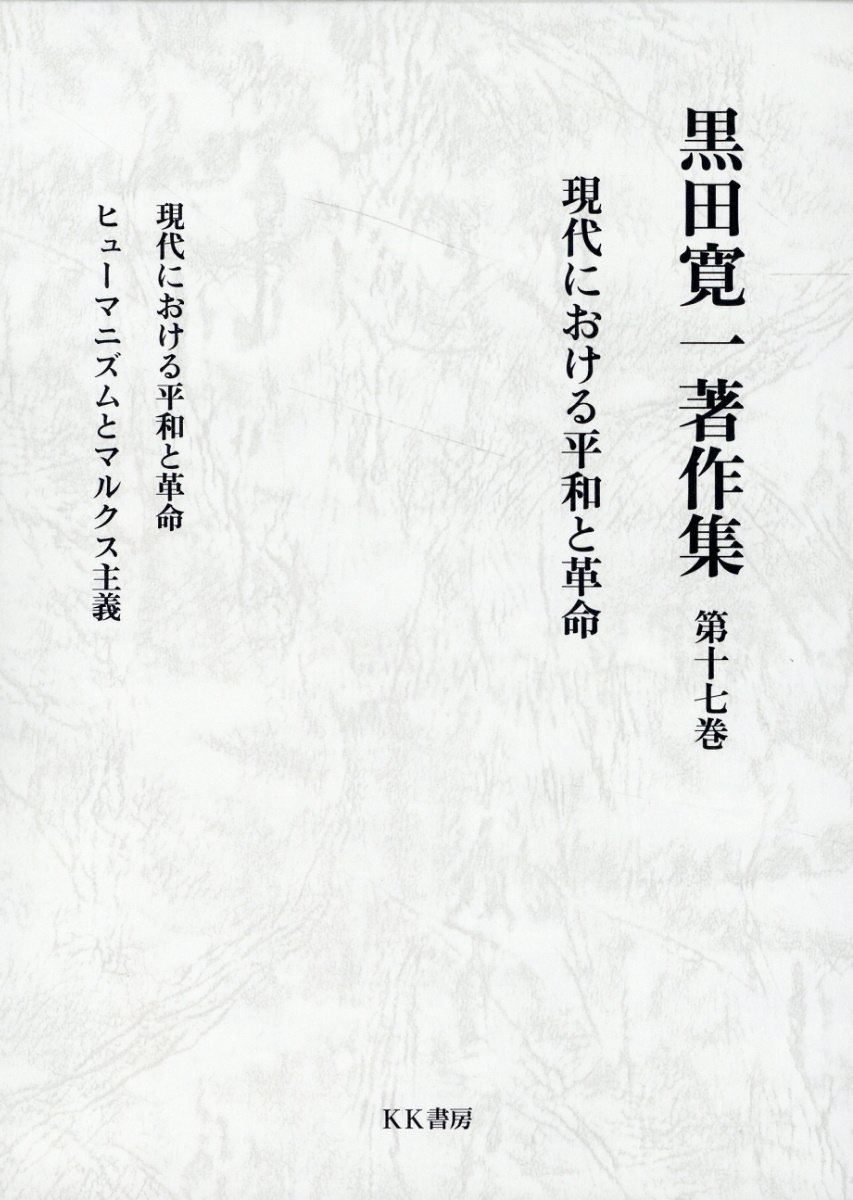 黒田寛一著作集 第十七巻
現代における平和と革命
現代における平和と革命
ヒューマニズムとマルクス主義
KK書房